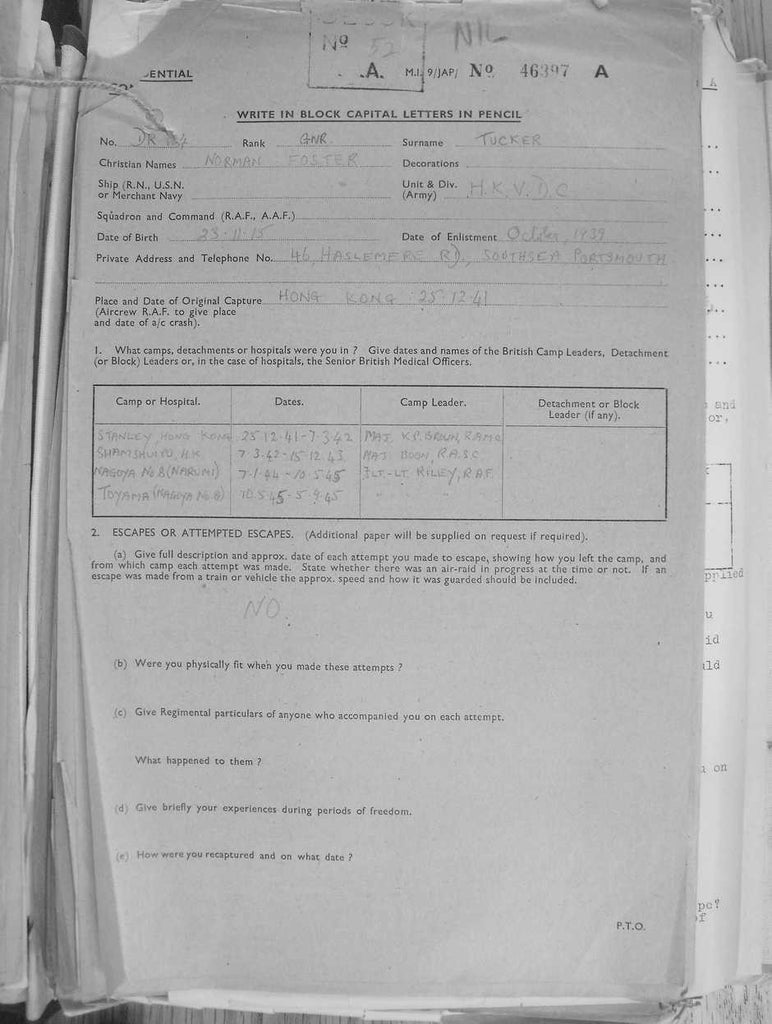 BLOCK
Nº 52 NIL
.A.
ENTIAL M.I.9/JAP/ Nº 46397 A
WRITE IN BLOCK CAPITAL LETTERS IN PENCIL
No. DR Rank GNR. Surname TUCKER
Christian Names NORMAN FOSTER Decorations
Ship (R.N., U.S.N. or Merchant Navy Unit & Div. (Army) H.K.V.D.C
Squadron and Command (R.A.F., A.A.F.)
Date of Birth 23-11-15 Date of Enlistment October, 1939
Private Address and Telephone No. 46, HASLEMERE RD., SOUTHSEA PORTSMOUTH
Place and Date of Original Capture HONG KONG 25-12-41
(Aircrew R.A.F. to give place
and date of a/c crash).
1. What camps, detachments or hospitals were you in ? Give dates and names of the British Camp Leaders, Detachment
(or Block) Leaders or, in the case of hospitals, the Senior British Medical Officers.
Camp or Hospital. Dates. Camp Leader. Detachment or Block
Leader (if any).
STANLEY, HONG KONG 25-12-41-7-3-42 MAJ. K.P. BROWN, R.A.M.C.
SHAMSHUIPO, H.K. 7-3-42-15-12-43 MAJ. BOON, R.A.S.C
NAGOYA No 8 (NARUMI) 7-1-44-10-5-45 FLT-LT RILEY, R.A.F.
TOYAMA (NAGOYA No. 8) 10.5.45-5.9.45 " " "
2. ESCAPES OR ATTEMPTED ESCAPES. (Additional paper will be supplied on request if required).
(a) Give full description and approx. date of each attempt you made to escape, showing how you left the camp, and
from which camp each attempt was made. State whether there was an air-raid in progress at the time or not. If an
escape was made from a train or vehicle the approx. speed and how it was guarded should be included.
NO.
(b) Were you physically fit when you made these attempts ?
(c) Give Regimental particulars of anyone who accompanied you on each attempt.
What happened to them ?
(d) Give briefly your experiences during periods of freedom.
(e) How were you recaptured and on what date ?
P.T.O.